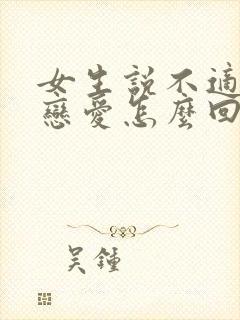 女生説不適
戀愛怎麼回
吳鍾